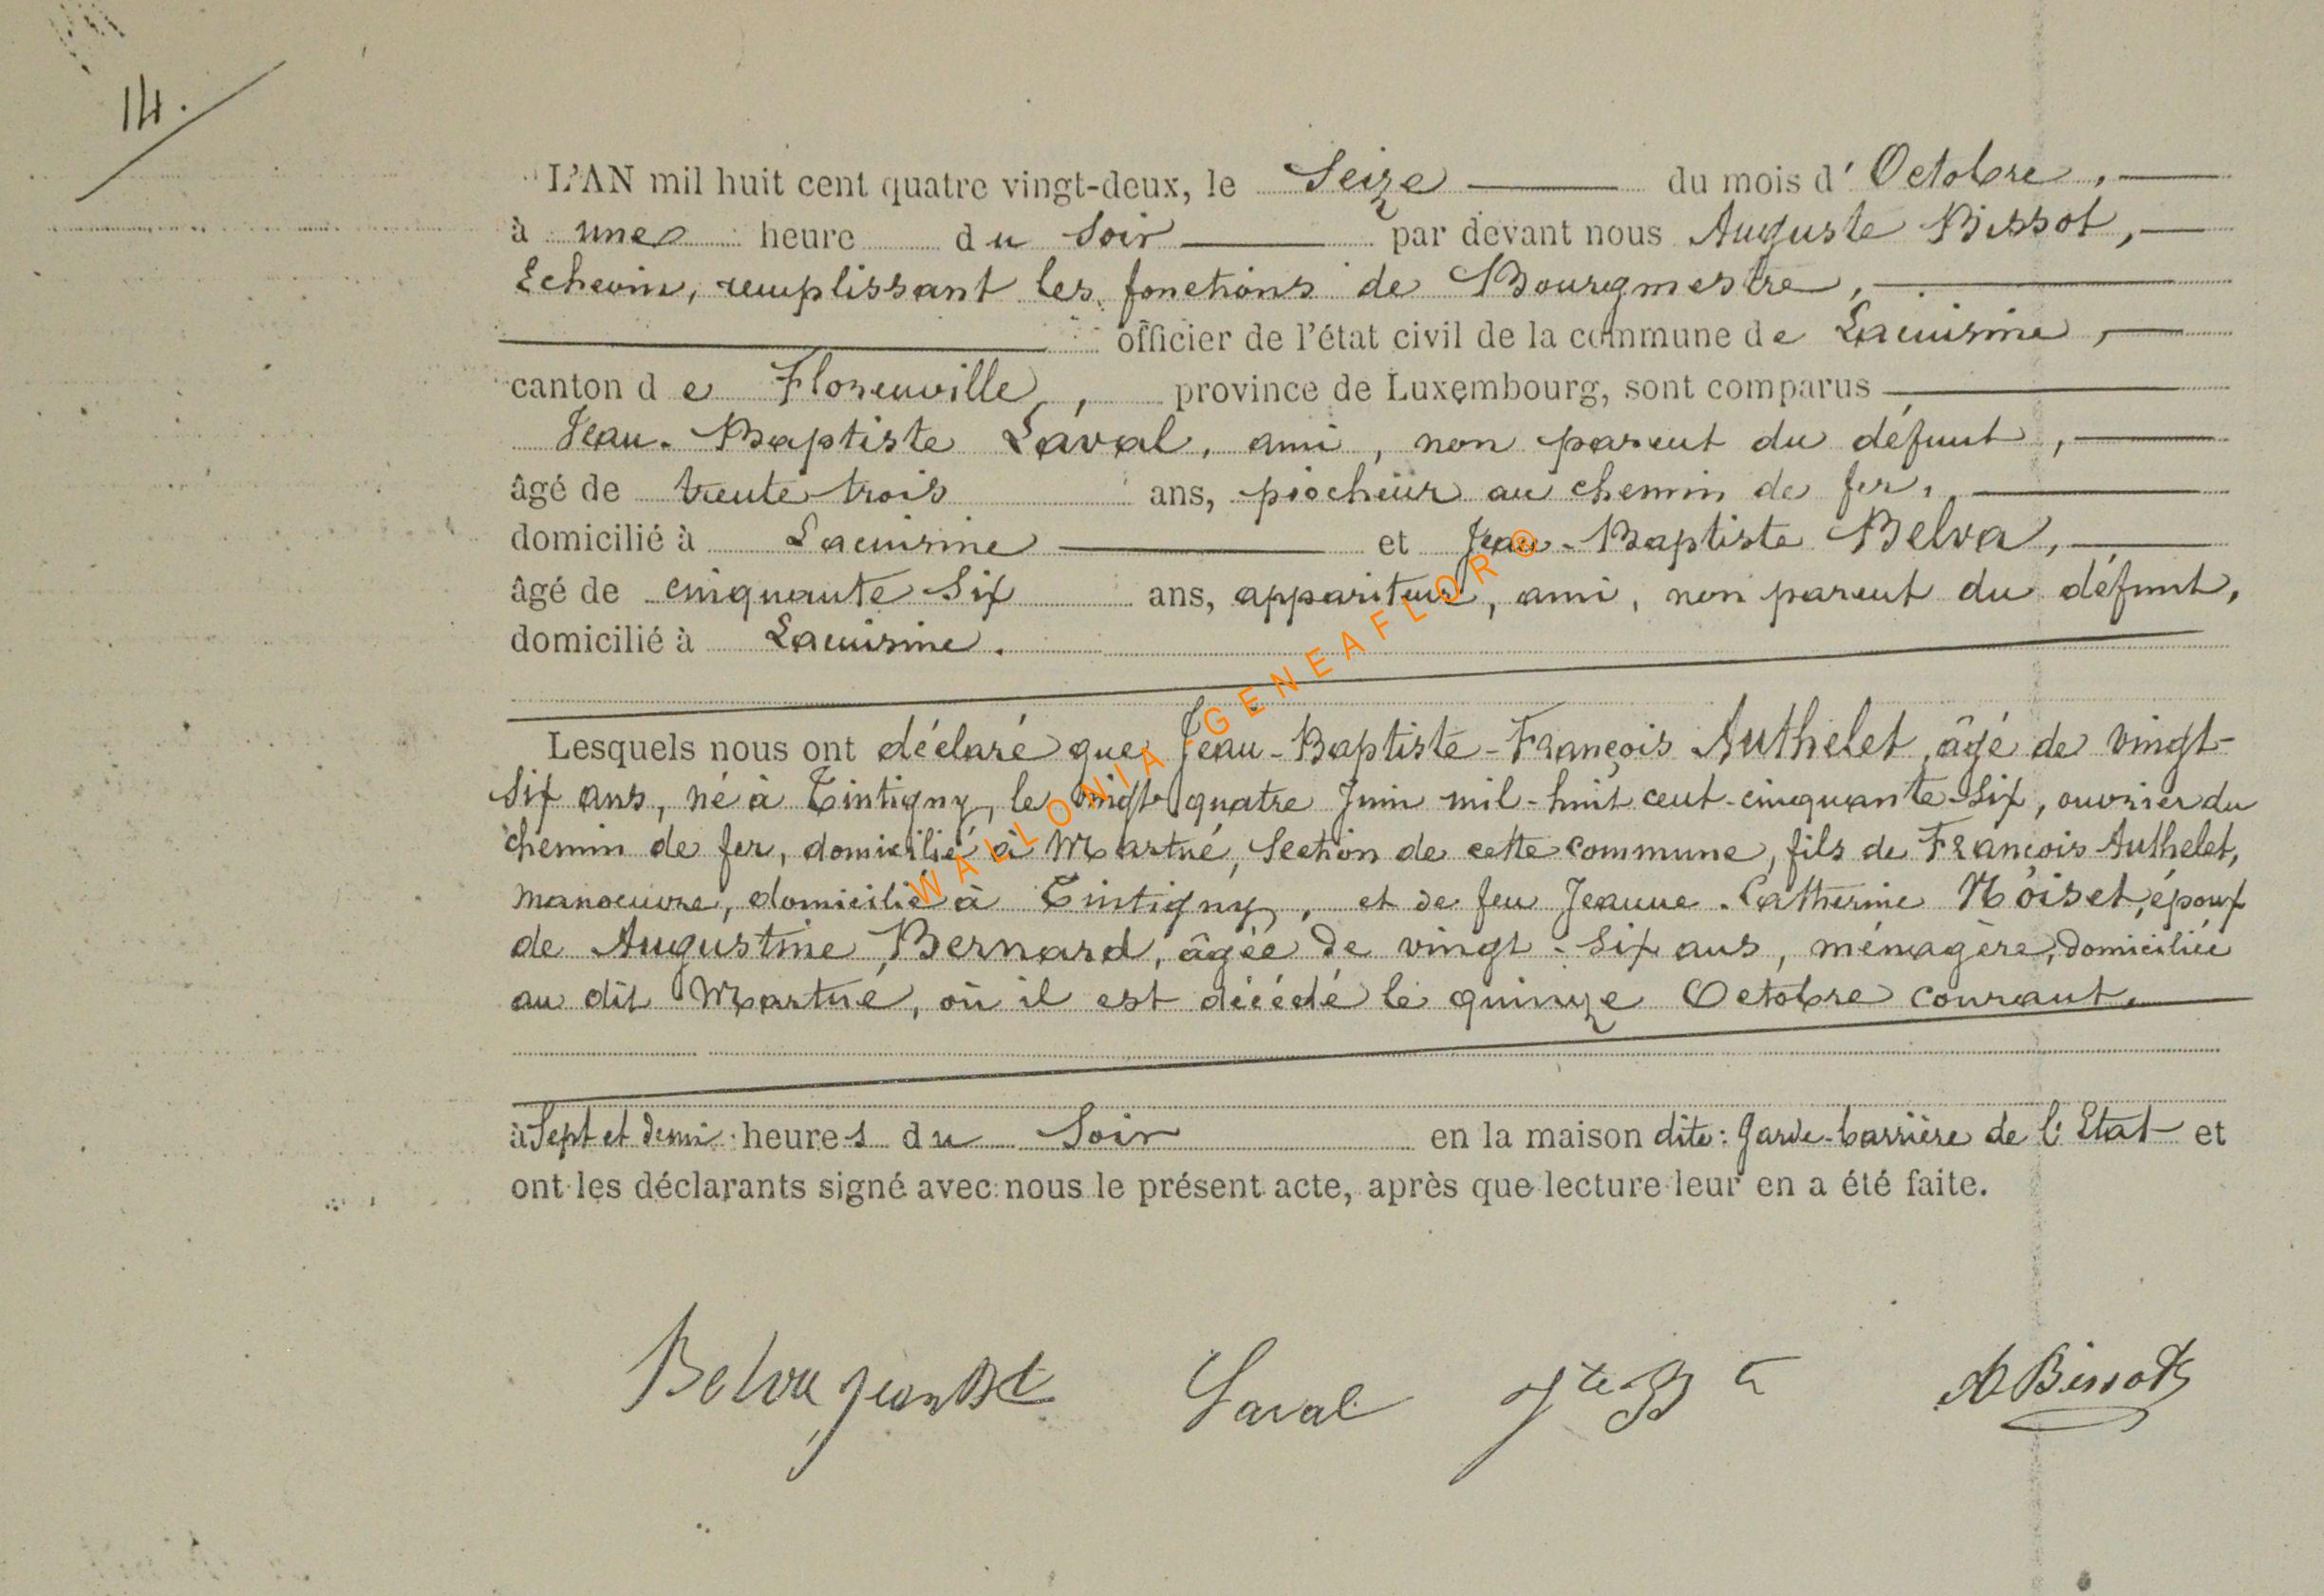 14.
L'AN mil huit cent quatre vingt-deux, le Seize du mois d' Octobre,
à une heure du Soir par devant nous Auguste Bissot,
Echevin, remplissant les fonctions de Bourgmestre,
officier de l'état civil de la commune de Lacuisine,
canton de Florenville, province de Luxembourg, sont comparus
Jean-Baptiste Laval, ami, non parent du défunt,
âgé de trente trois ans, piocheur au chemin de fer,
domicilié à Lacuisine et Jean-Baptiste Belva,
âgé de cinquante Six ans, appariteur, ami, non parent du défunt,
domicilié à Lacuisine.
Lesquels nous ont déclaré que Jean-Baptiste-François Authelet, âgé de vingt-
Six ans, né à Tintigny, le vingt quatre Juin mil-huit cent-cinquante-Six, ouvrier du
chemin de fer, domicilié à Martué, Section de cette commune, fils de François Authelet,
manoeuvre, domicilié à Tintigny, et de feu Jeanne-Catherine Noiset, époux
de Augustine Bernard, âgée de vingt-Six ans, ménagère, domiciliée
au dit Martué, où il est décédé le quinze Octobre courant.
à Sept et demi heures du Soir en la maison dite: Garde-barrière de l'Etat et
ont les déclarants signé avec nous le présent acte, après que lecture leur en a été faite.
Belva jean Bt Laval Jte ABissot
WALLONIA GENEAFLOR ©